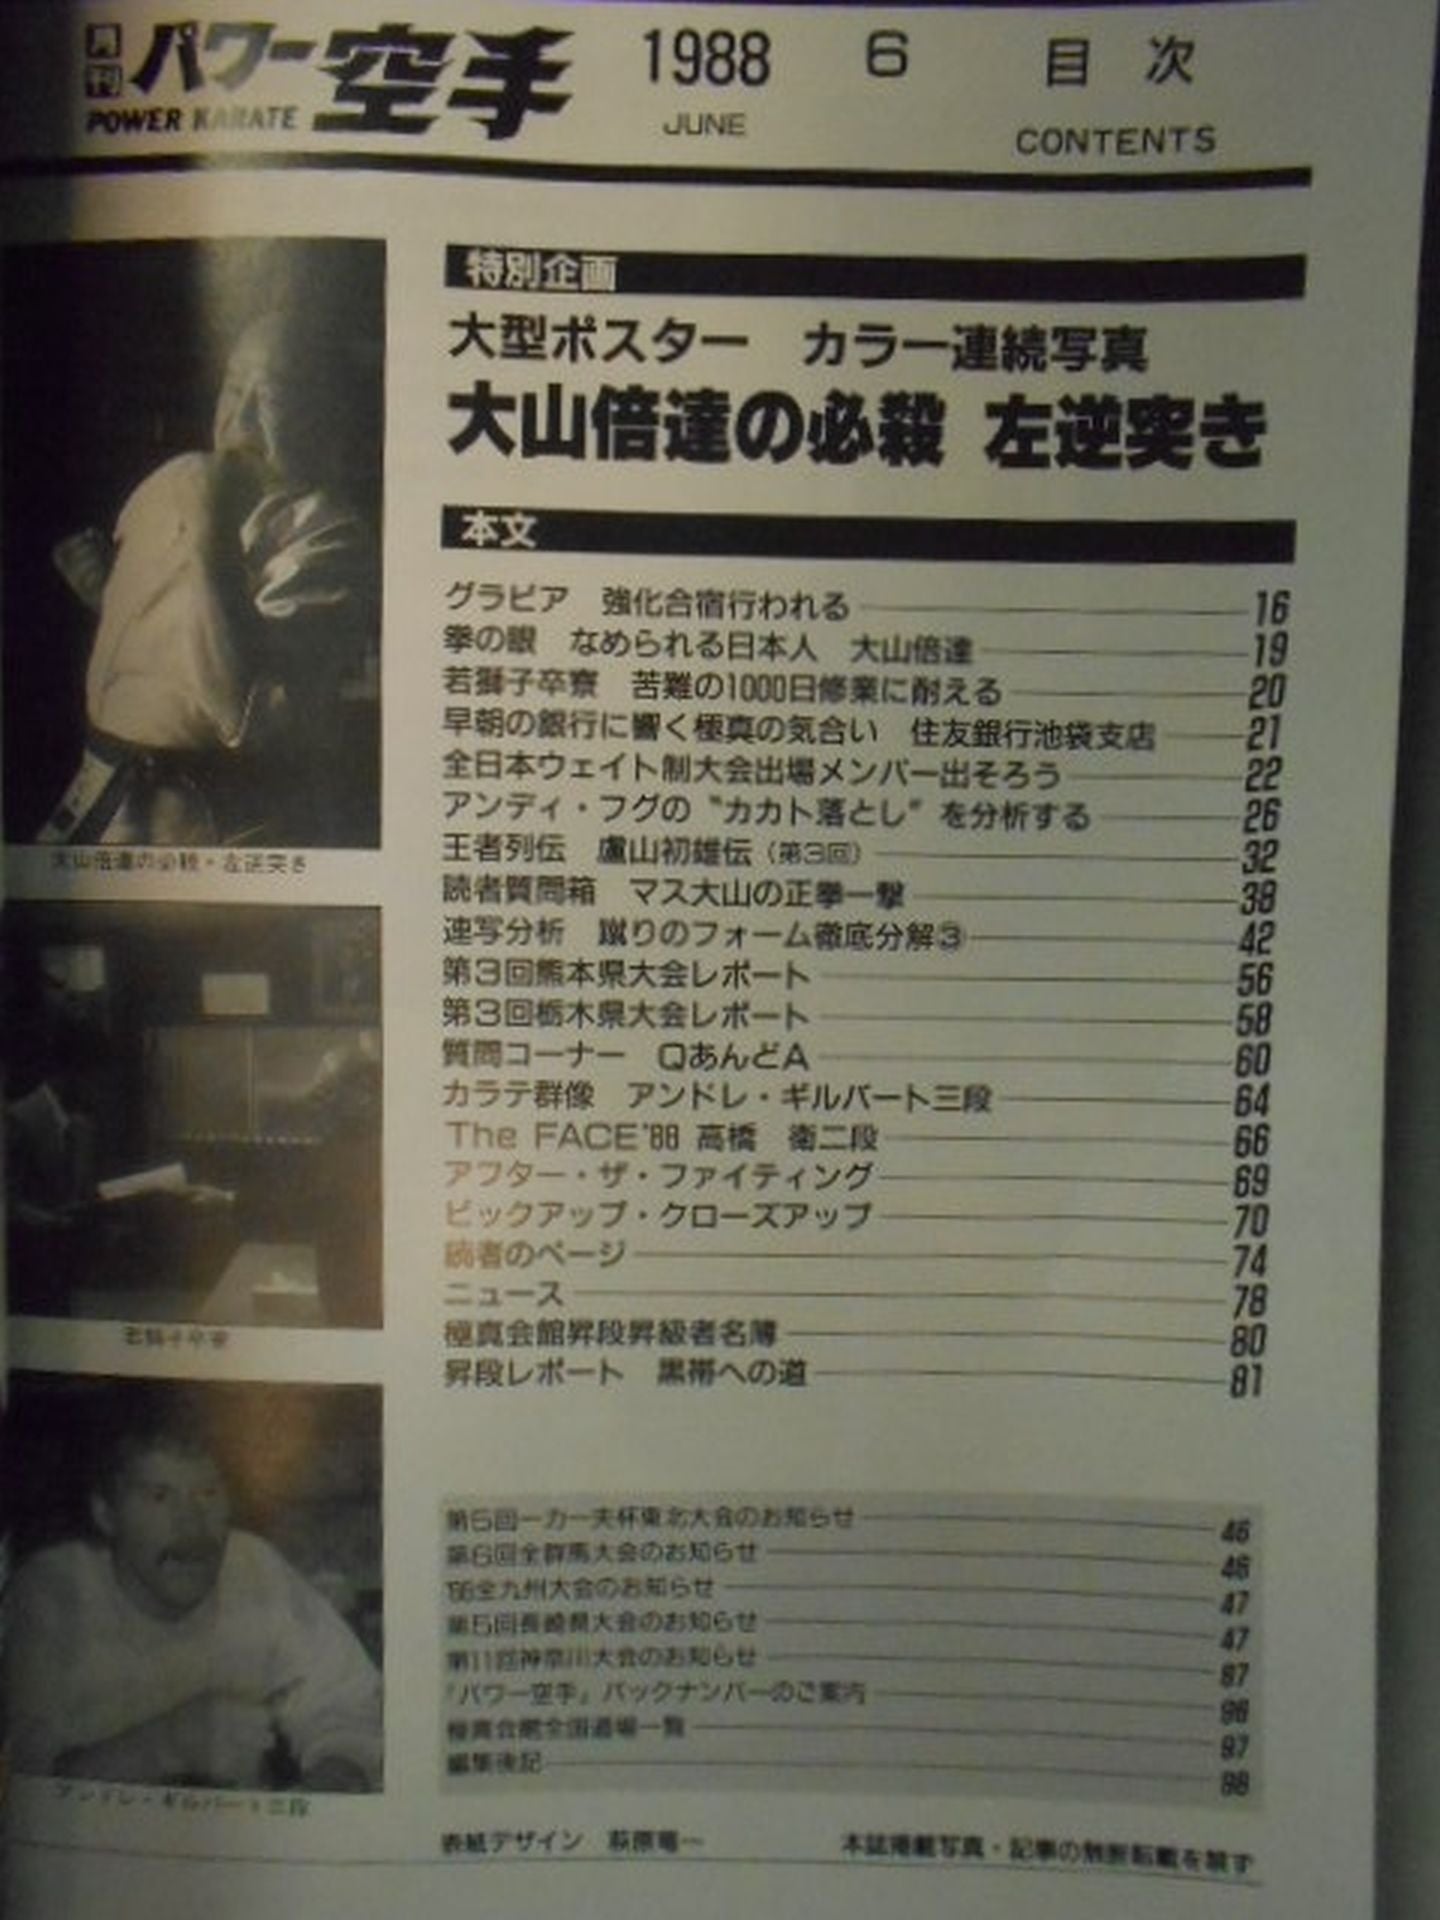 月刊 パワー空手
POWER KARATE
1988 6 目次
JUNE
CONTENTS
特別企画
大型ポスター カラー連続写真
大山倍達の必殺 左逆突き
本文
グラビア 強化合宿行われる 16
拳の眼 なめられる日本人 大山倍達 19
若獅子卒寮 苦難の1000日修業に耐える 20
早朝の銀行に響く極真の気合い 住友銀行池袋支店 21
全日本ウェイト制大会出場メンバー出そろう 22
アンディ・フグの〝カカト落とし〟を分析する 26
王者列伝 盧山初雄伝(第3回) 32
読者質問箱 マス大山の正拳一撃 38
連写分析 蹴りのフォーム徹底分解③ 42
第3回熊本県大会レポート 56
第3回栃木県大会レポート 58
質問コーナー QあんどA 60
カラテ群像 アンドレ・ギルバート三段 64
The FACE'88 高橋 衛二段 66
アフター・ザ・ファイティング 69
ピックアップ・クローズアップ 70
読者のページ 74
ニュース 78
極真会館昇段昇級者名簿 80
昇段レポート 黒帯への道 81
第5回一力一夫杯東北大会のお知らせ 46
第6回全群馬大会のお知らせ 46
'88全九州大会のお知らせ 47
第5回長崎県大会のお知らせ 47
第11回神奈川大会のお知らせ 87
『パワー空手』バックナンバーのご案内 96
極真会館全国道場一覧 97
編集後記 98
表紙デザイン 萩原竜一
本誌掲載写真・記事の無断転載を禁ず
大山倍達の必殺・左逆突き
若獅子卒寮
アンドレ・ギルバート三段